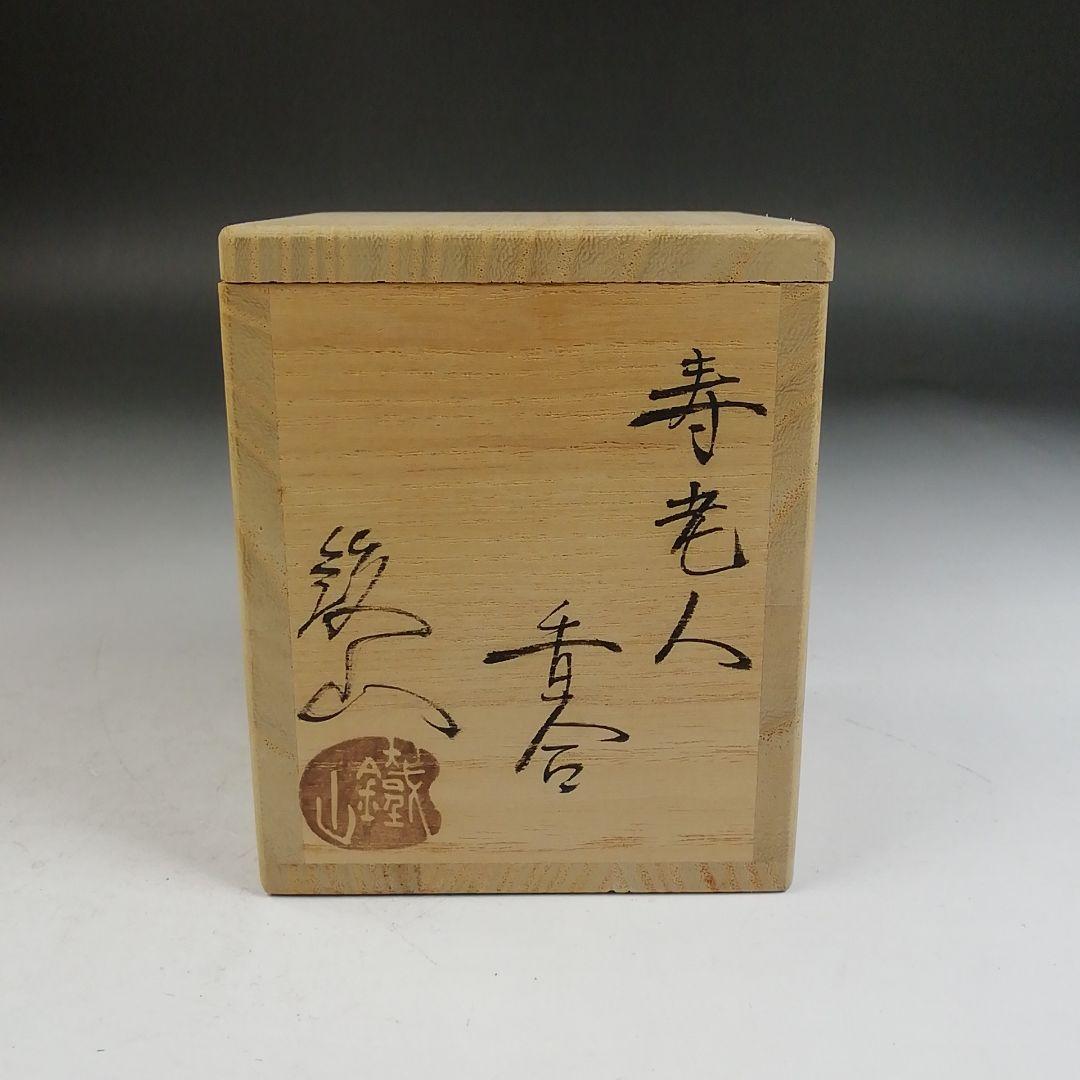 寿老人
香合
鐵山
鐵山